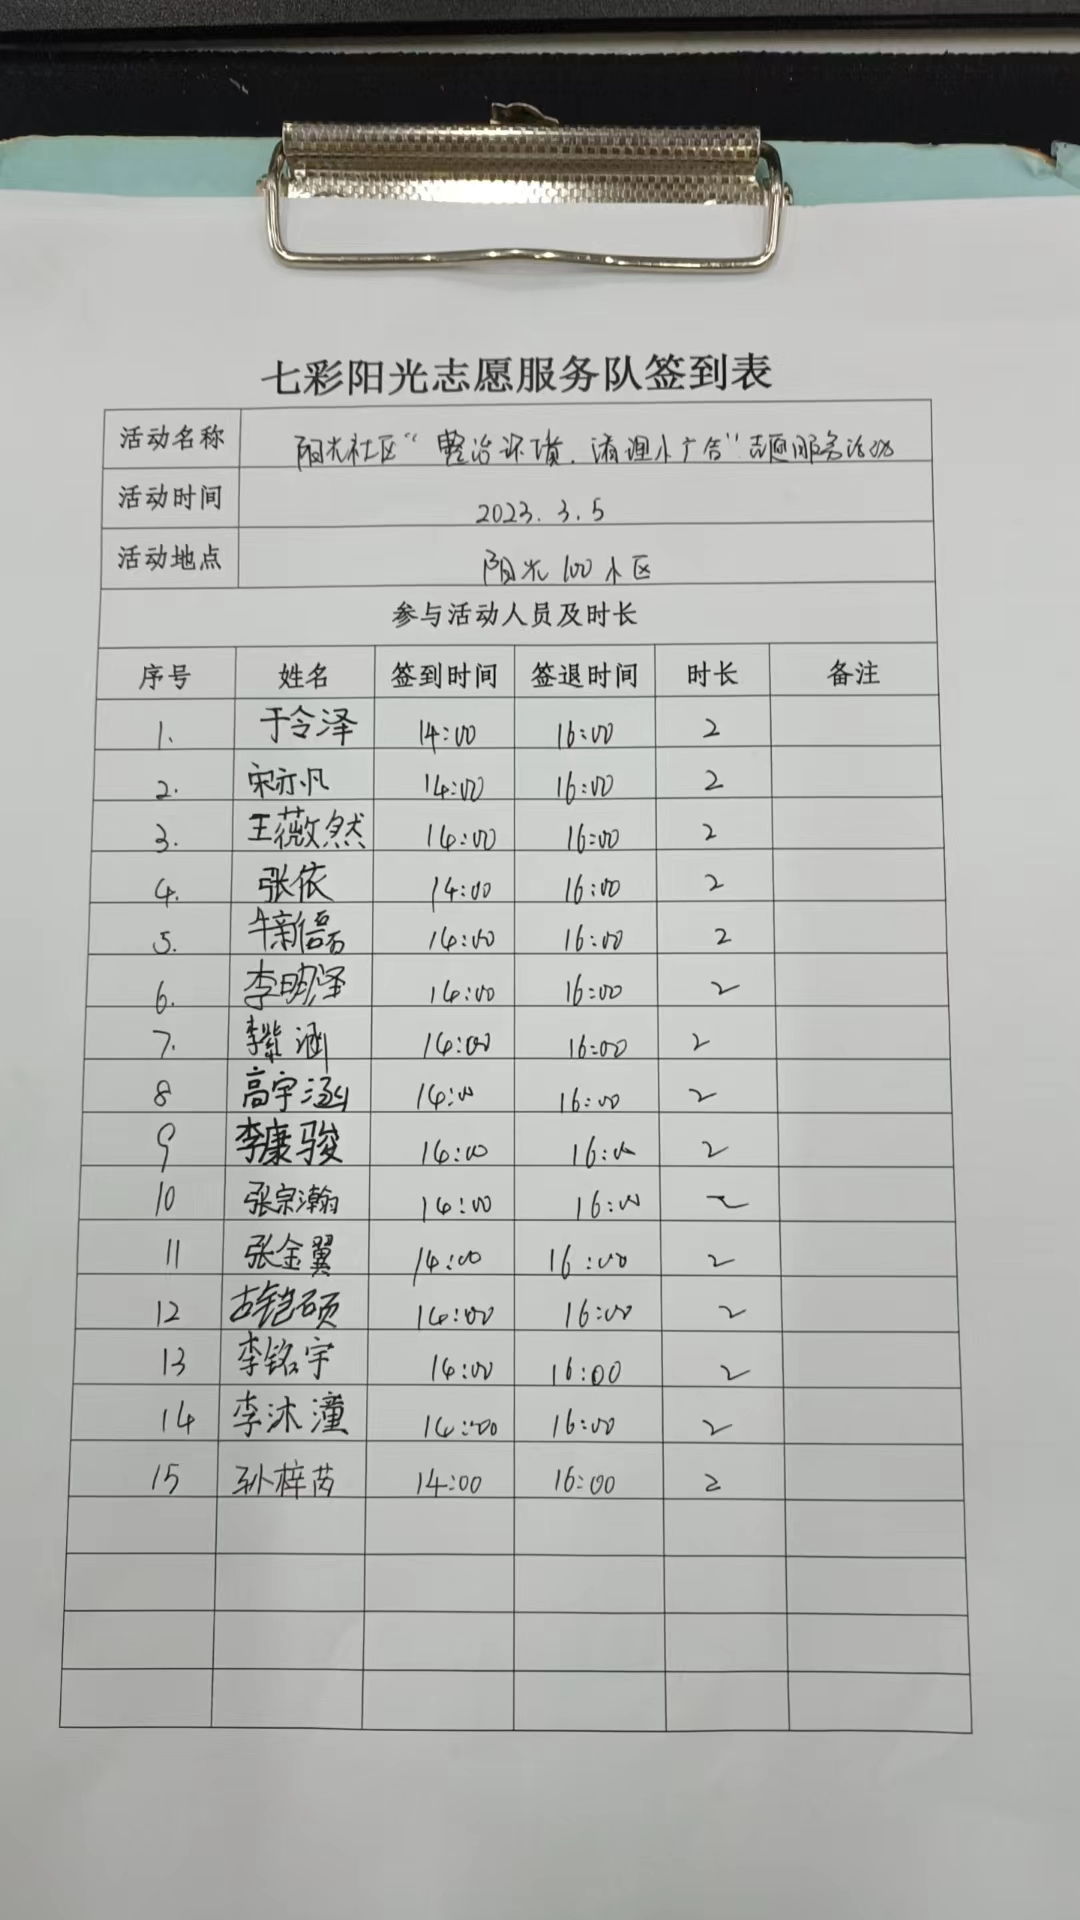 七彩阳光志愿服务队签到表
活动名称 阳光社区“整治环境、清理小广告”志愿服务活动
活动时间 2023.3.5
活动地点 阳光100小区
参与活动人员及时长
序号 姓名 签到时间 签退时间 时长 备注
1. 于令泽 14:00 16:00 2
2. 宋亦凡 14:00 16:00 2
3. 王薇然 14:00 16:00 2
4. 张依 14:00 16:00 2
5. 牛新磊 14:00 16:00 2
6. 李明泽 14:00 16:00 2
7. 李紫涵 14:00 16:00 2
8 高宇涵 14:00 16:00 2
9 李康骏 14:00 16:00 2
10 张宗瀚 14:00 16:00 2
11 张金翼 14:00 16:00 2
12 古铠硕 14:00 16:00 2
13 李铭宇 14:00 16:00 2
14 李沐潼 14:00 16:00 2
15 孙梓芮 14:00 16:00 2